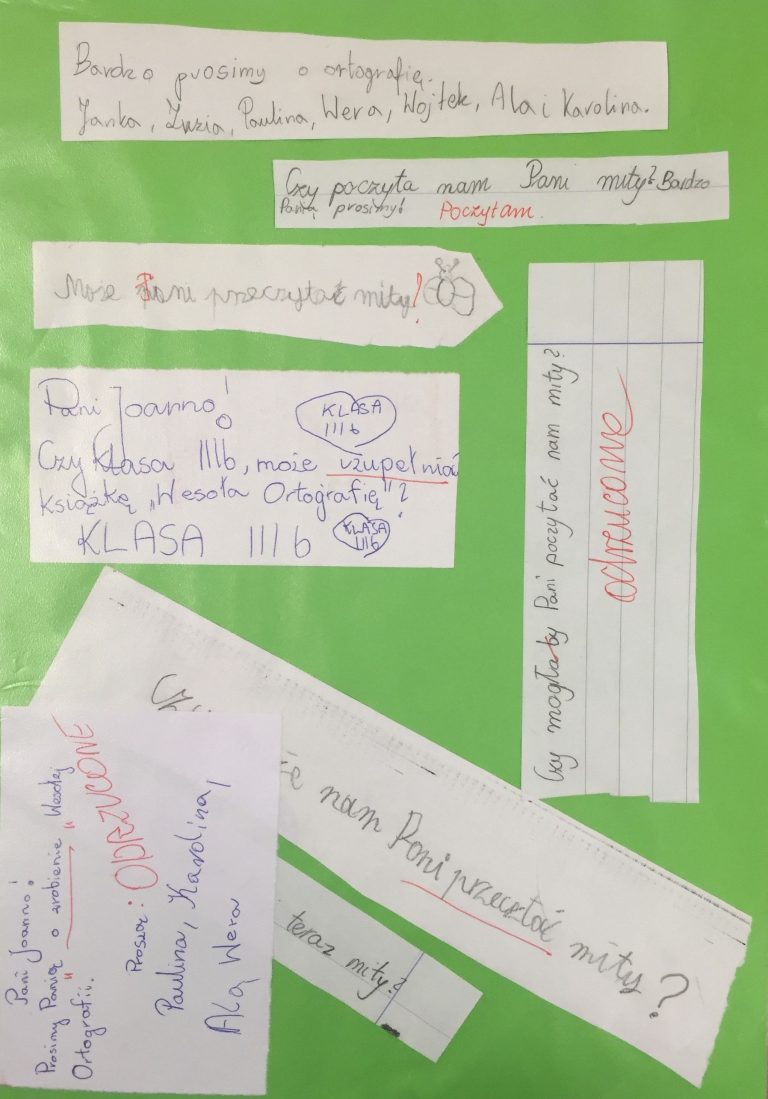 Bardzo prosimy o ortografię.
Janka, Zuzia, Paulina, Wera, Wojtek, Ala i Karolina.
Czy poczyta nam Pani mity? Bardzo
Panią prosimy! Poczytam.
Może Pani przeczytać mity!
Pani Joanno!
KLASA
III b
Czy klasa IIIb, może uzupełniać
książkę „Wesoła Ortografię"?
KLASA III b
KLASA
IIIb
Czy mogłaby Pani poczytać nam mity?
odrzucone
nam Pani przecztać mity?
teraz mity?
Pani Joanno!
Prosimy Panią o zrobienie "Wesołej
Ortografii".
ODRZUCONE
Proszą:
Paulina, Karolina,
Ala, Wera